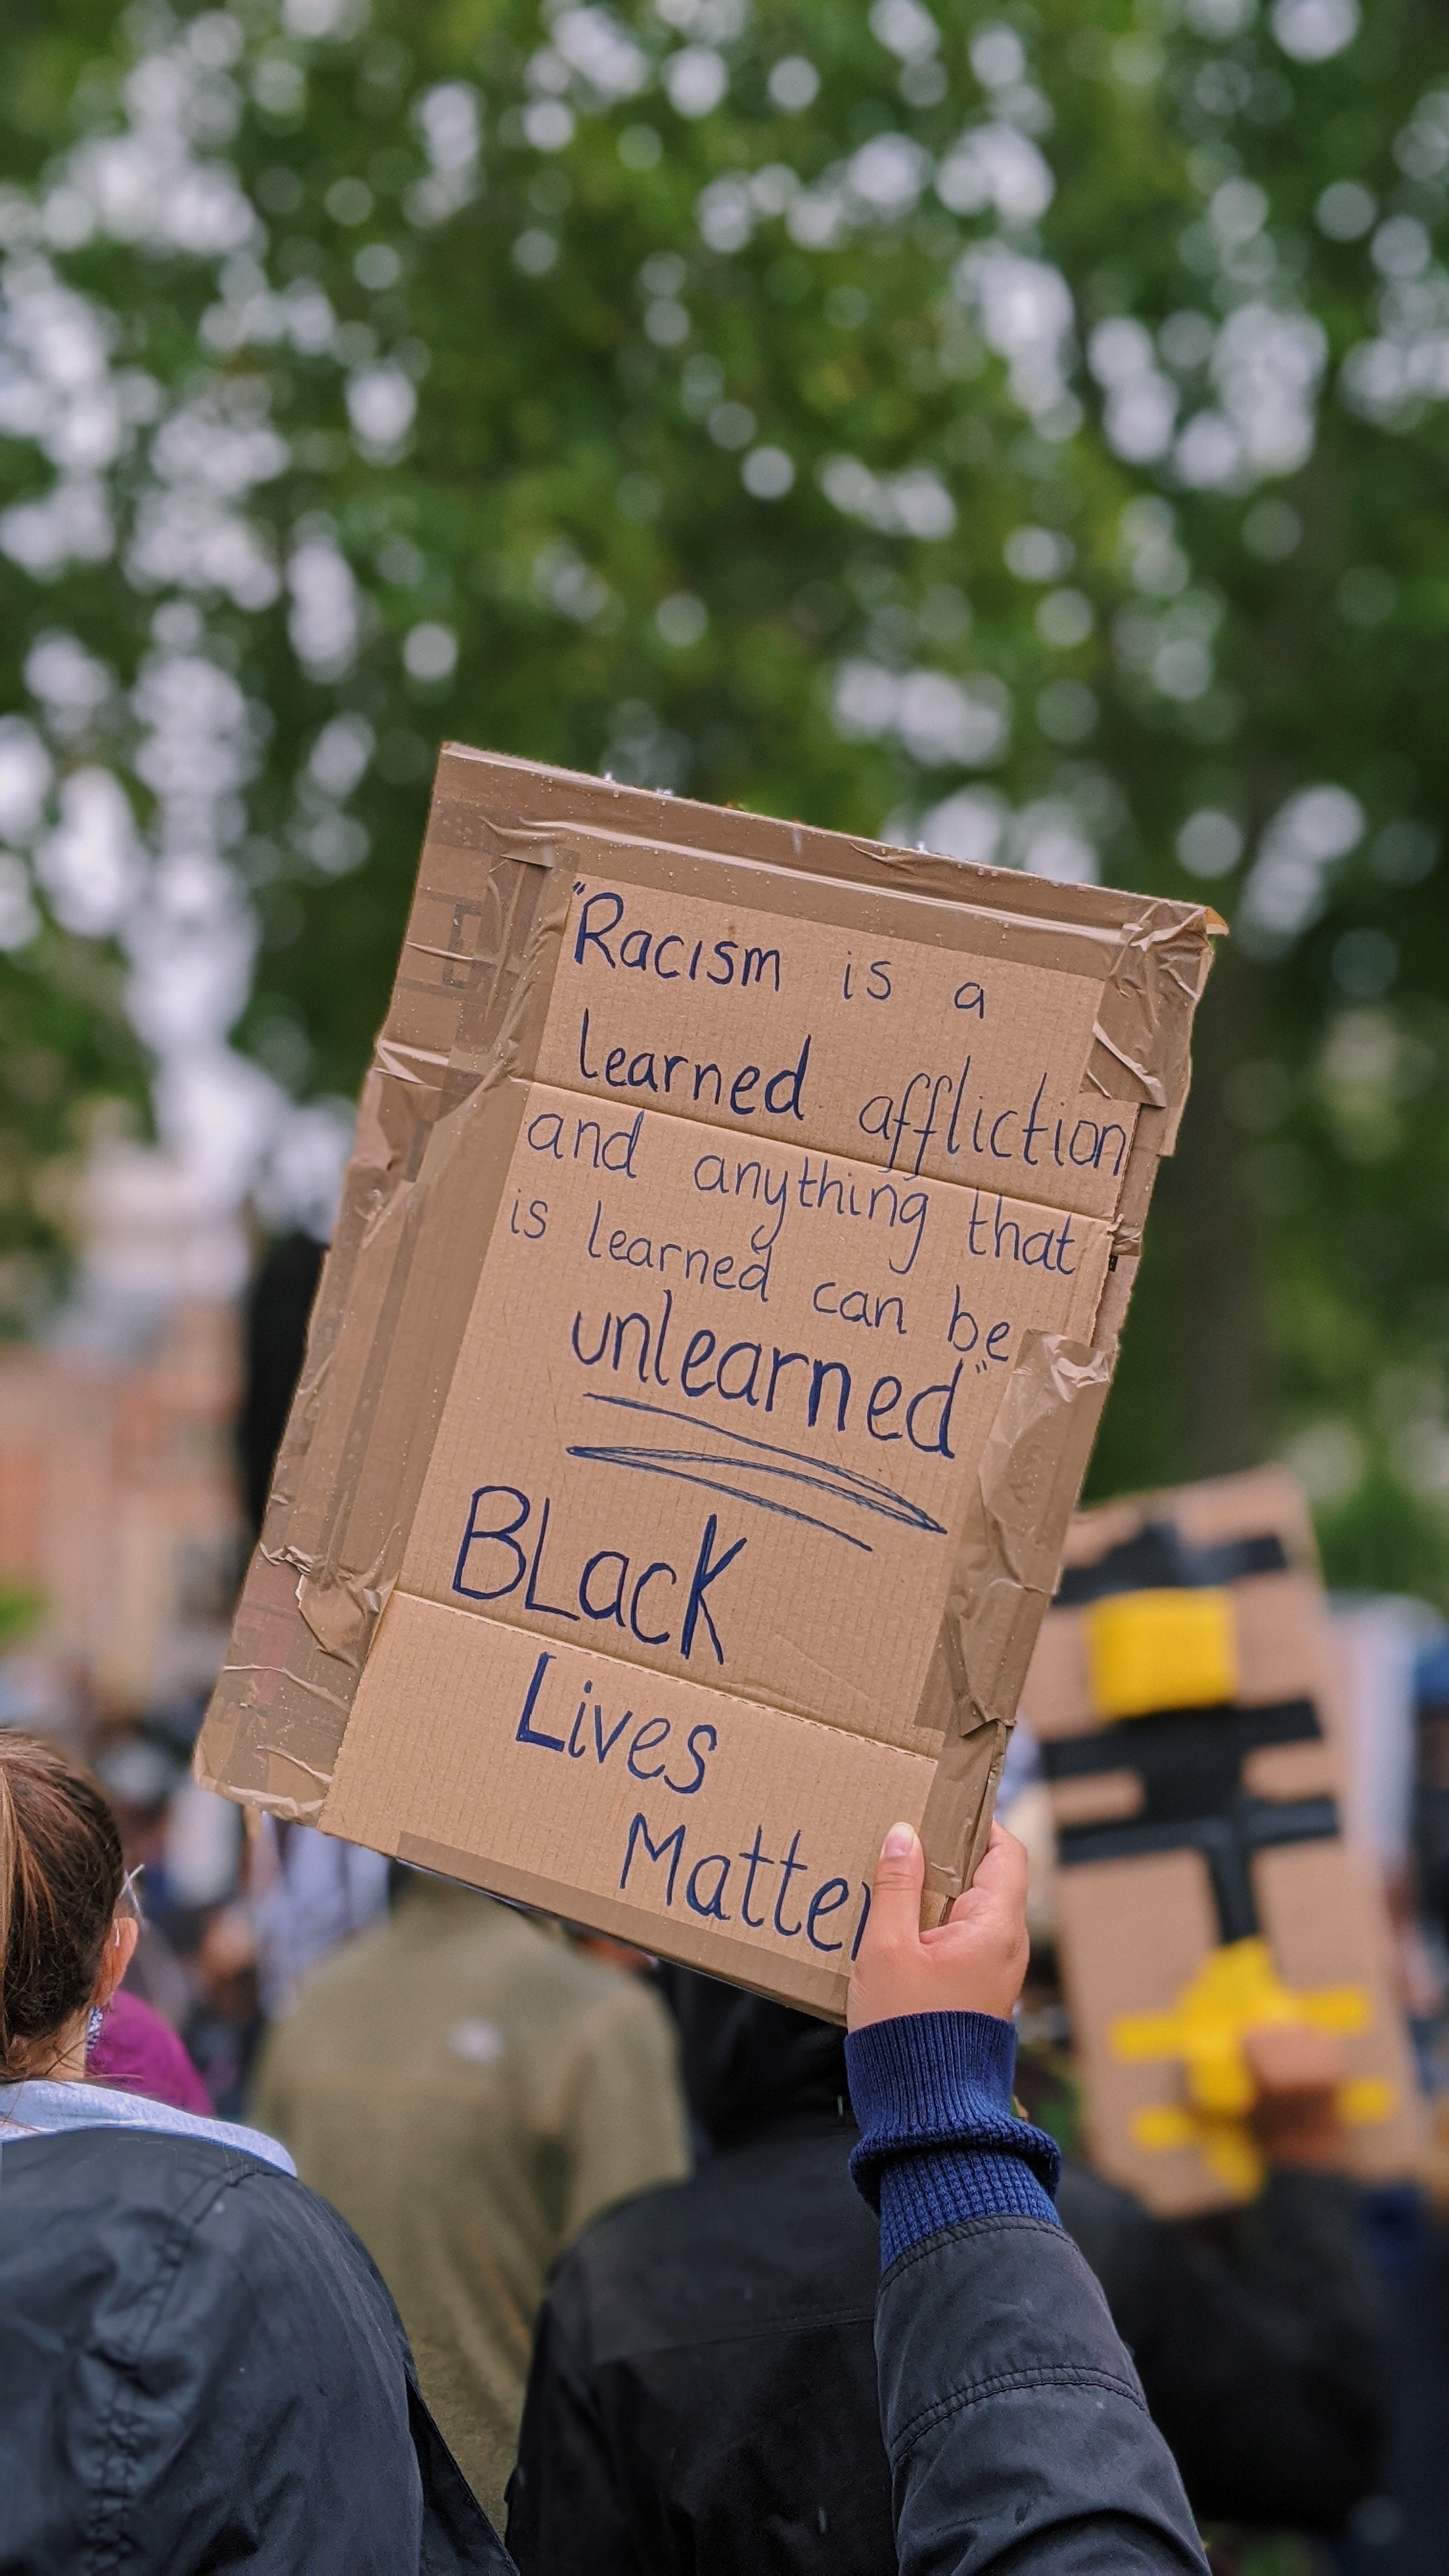 "Racism is a
learned affliction
and anything that
is learned can be
unlearned"
BLack
Lives
Matter